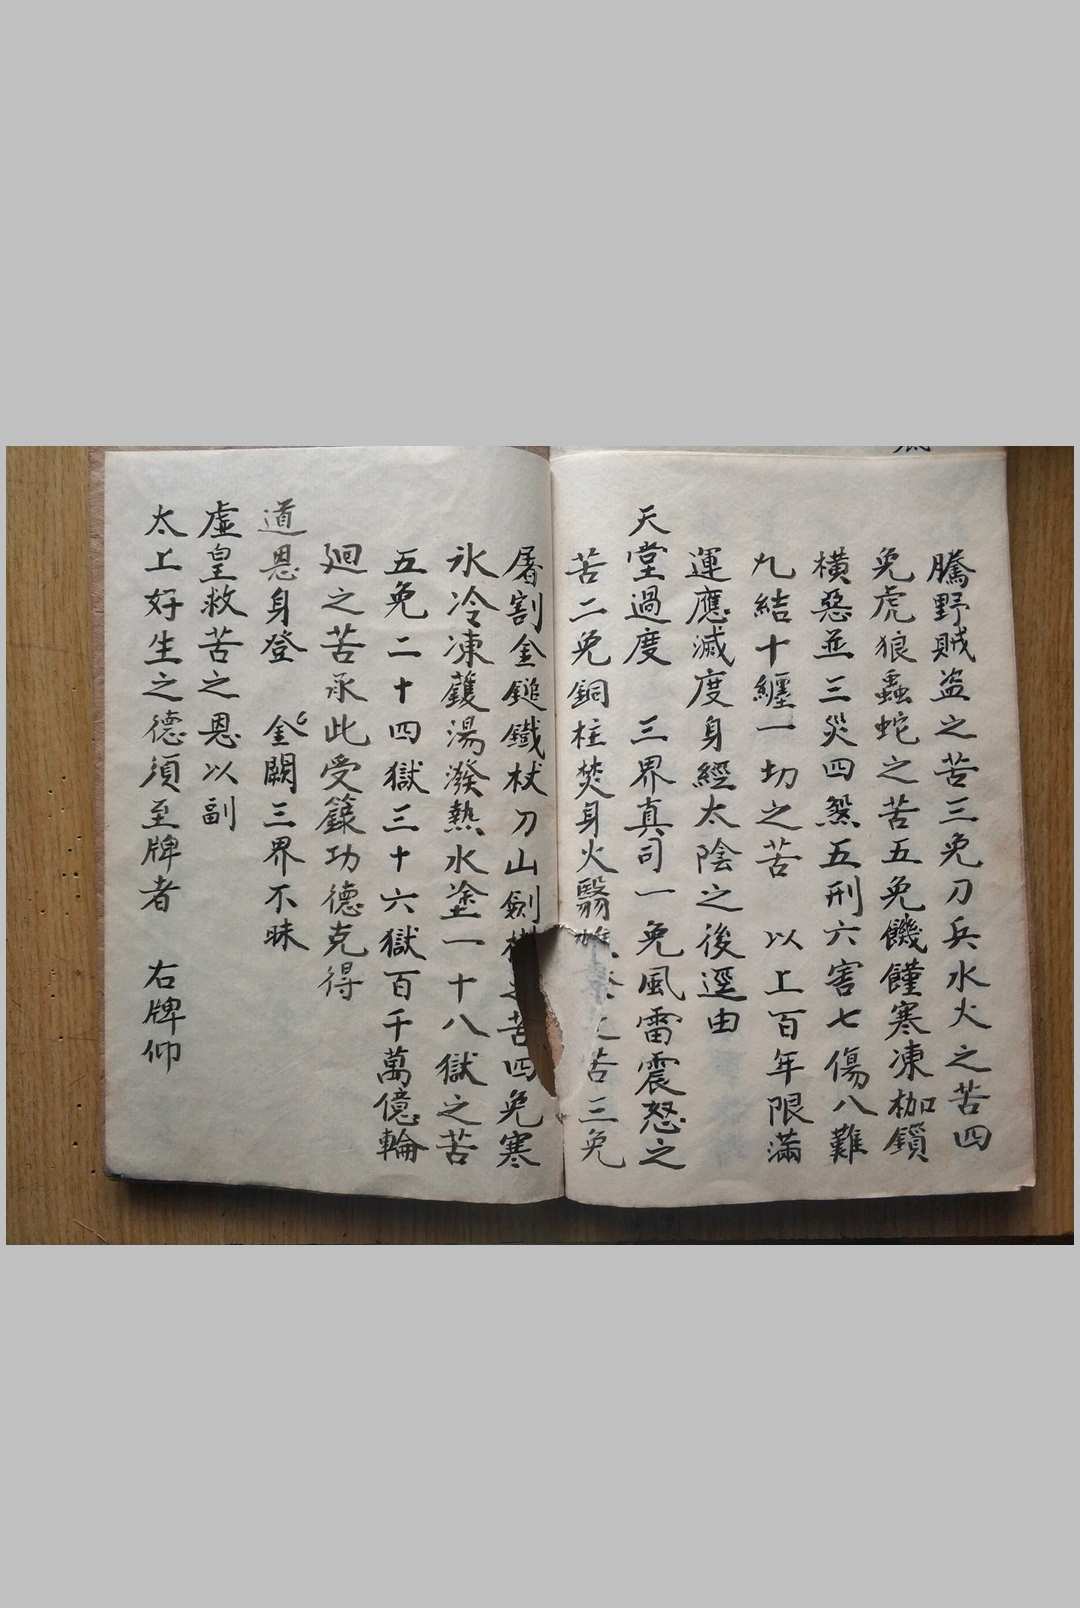 騰野賊盗之苦三免刀兵水火之苦四
免虎狼蟲蛇之苦五免饑饉寒凍枷鎖
橫惡並三災四煞五刑六害七傷八難
九結十纏一切之苦　以上百年限滿
運應滅度身經太陰之後逕由
天堂過度　三界真司一免風雷震怒之
苦二免銅柱焚身火翳之苦三免
屠割金鎚鐵杖刀山劍樹之苦四免寒
氷冷凍鑊湯潑熱水塗一十八獄之苦
五免二十四獄三十六獄百千萬億輪
廻之苦承此受籙功德克得
道恩身登　金闕三界不昧
虛皇救苦之恩以副
太上好生之德須至牌者　右牌仰